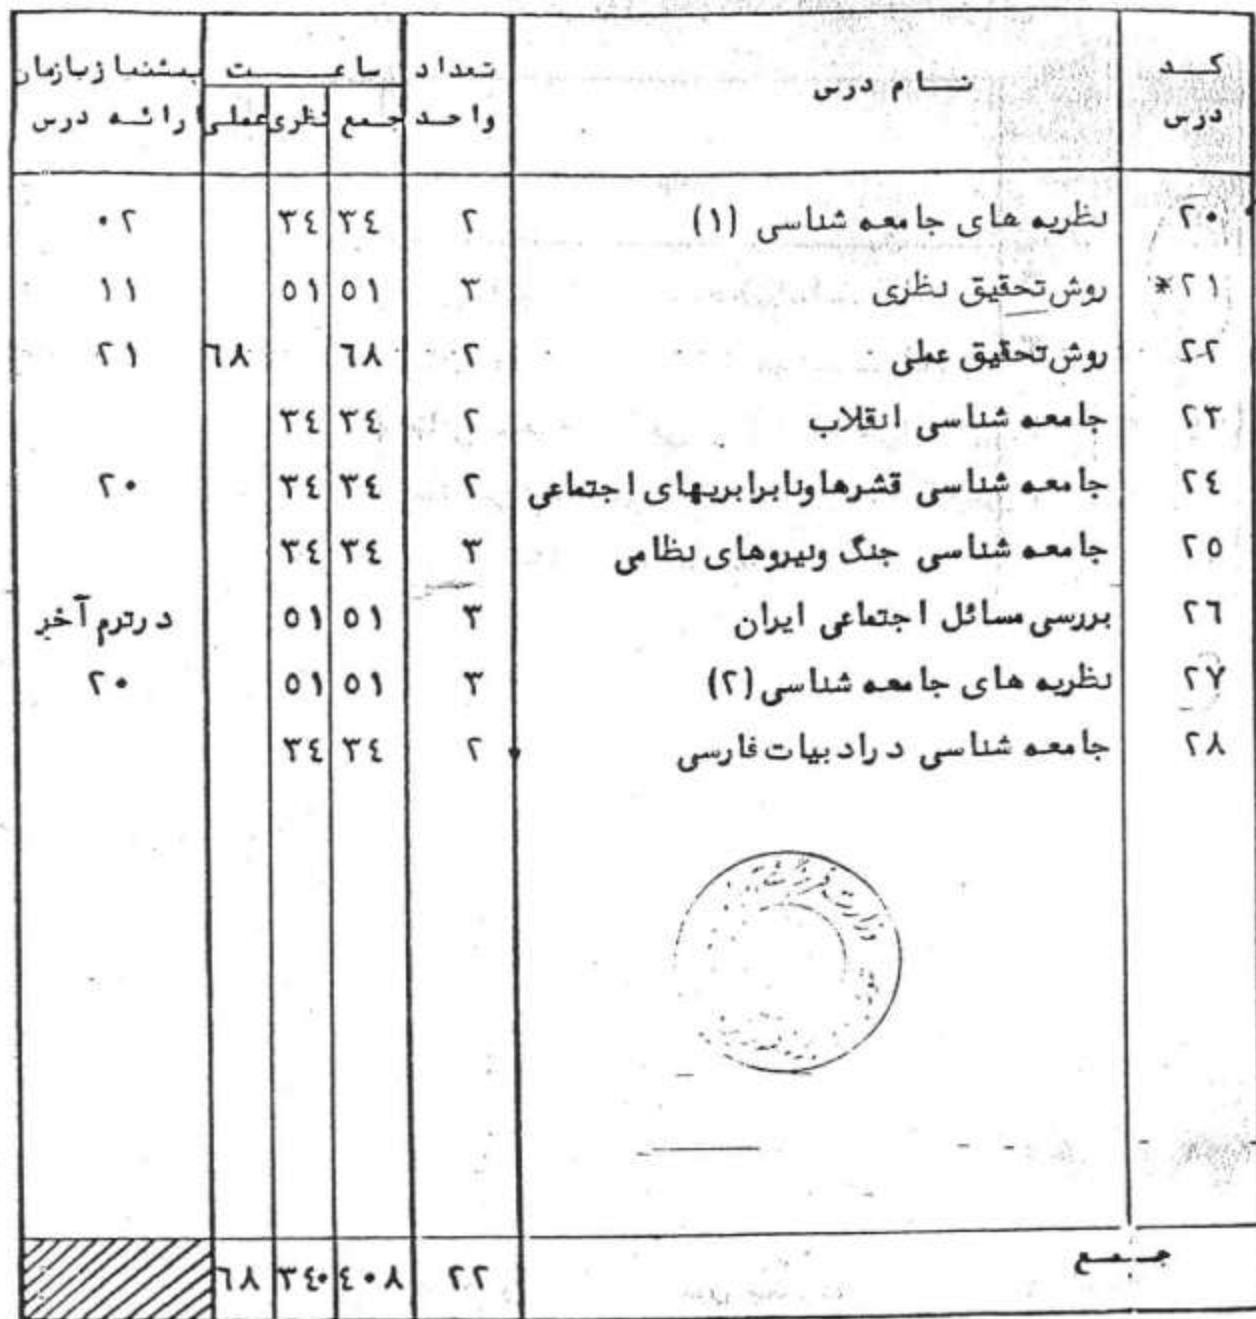 کد درس | نام درس | تعداد واحد | ساعت: جمع | نظری | عملی | پیشنیاز یا زمان ارائه درس
۲۰ | نظریه های جامعه شناسی (۱) | ۲ | ۳٤ | ۳٤ | | ۰۲
*۲۱ | روش تحقیق نظری | ۳ | ٥۱ | ٥۱ | | ۱۱
۲۲ | روش تحقیق عملی | ۲ | ٦۸ | | ٦۸ | ۲۱
۲۳ | جامعه شناسی انقلاب | ۲ | ۳٤ | ۳٤
۲٤ | جامعه شناسی قشرها ونابرابریهای اجتماعی | ۲ | ۳٤ | ۳٤ | | ۲۰
۲٥ | جامعه شناسی جنگ ونیروهای نظامی | ۳ | ۳٤ | ۳٤
۲٦ | بررسی مسائل اجتماعی ایران | ۳ | ٥۱ | ٥۱ | | درترم آخر
۲۷ | نظریه های جامعه شناسی (۲) | ۳ | ٥۱ | ٥۱ | | ۲۰
۲۸ | جامعه شناسی درادبیات فارسی | ۲ | ۳٤ | ۳٤
وزارت فرهنگ
جمع | ۲۲ | ٤۰۸ | ۳٤۰ | ٦۸